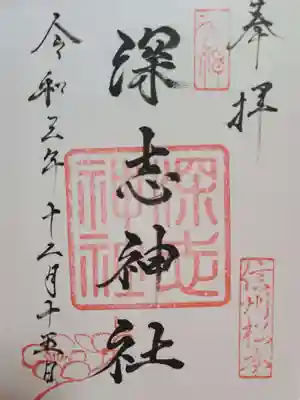 奉拝
天神
信州松本
深志神社
深志神社
令和三年十二月十五日